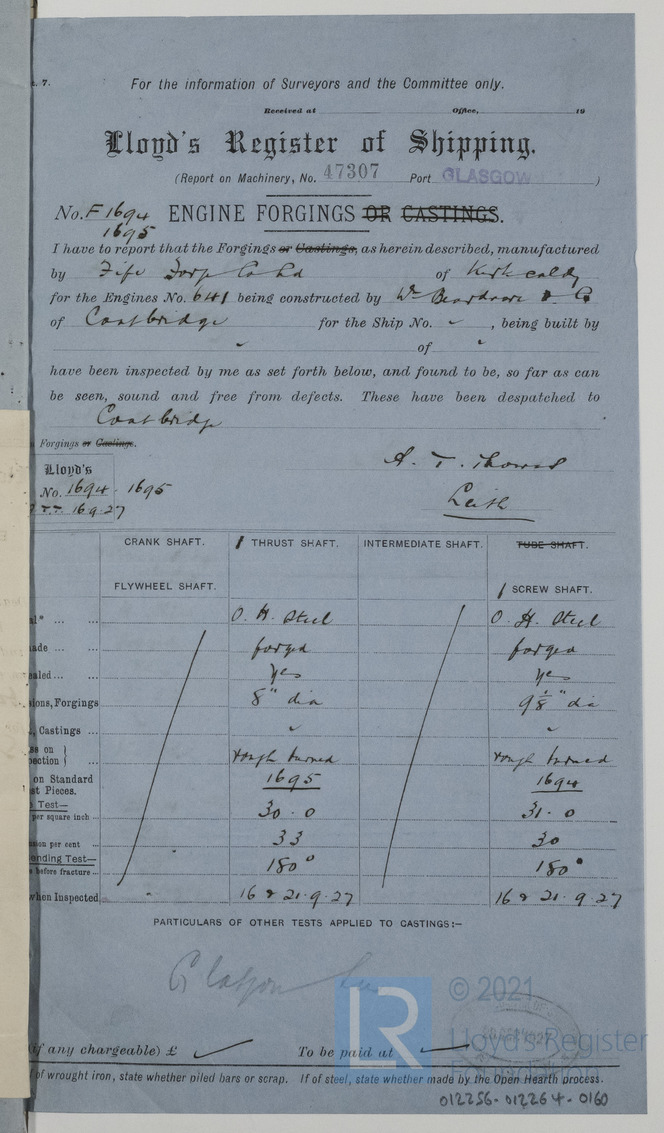 . 7.
For the information of Surveyors and the Committee only.
Received at Office, 19
Lloyd's Register of Shipping.
(Report on Machinery, No. 47307 Port GLASGOW )
No. F 1694 ENGINE FORGINGS OR CASTINGS.
1695
I have to report that the Forgings or Castings, as herein described, manufactured
by Fife Forg Co Ld of Kirkcaldy
for the Engines No. 641 being constructed by Wm Beardmore & Co
of Coatbridge for the Ship No. , being built by
of
have been inspected by me as set forth below, and found to be, so far as can
be seen, sound and free from defects. These have been despatched to
Coatbridge
Forgings or Castings.
A. T. Thomas
Lloyd's
No. 1694 . 1695
Leith
16 9 27
CRANK SHAFT. 1 THRUST SHAFT. INTERMEDIATE SHAFT. TUBE SHAFT.
FLYWHEEL SHAFT. 1 SCREW SHAFT.
al* ... ... O. H. Steel O. H. Steel
ade ... ... forged forged
ealed ... ... Yes Yes
sions, Forgings 8" dia 9 1/8" dia
, Castings ...
ss on }
ection } ... rough turned rough turned
on Standard
st Pieces. 1695 1694
Test—
per square inch ... 30 . 0 31 . 0
sion per cent ... 33 30
ending Test—
before fracture ... 180° 180°
when Inspected 16 & 21 . 9 . 27 16 & 21 . 9 . 27
PARTICULARS OF OTHER TESTS APPLIED TO CASTINGS:—
Glasgow
LR
© 2021
Lloyd's Register
Foundation
(if any chargeable) £ To be paid at
of wrought iron, state whether piled bars or scrap. If of steel, state whether made by the Open Hearth process.
012256-012264-0160